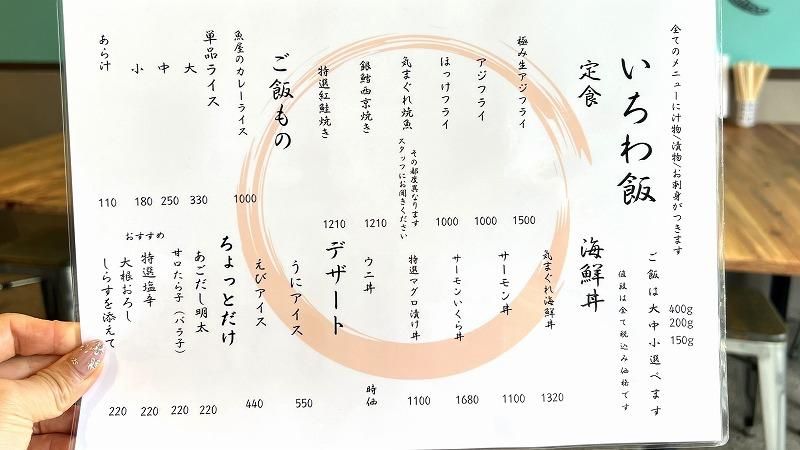 全てのメニューに汁物/漬物/お刺身がつきます
いちわ飯
ご飯は大中小選べます
400g
200g
150g
値段は全て税込み価格です
定食
極み生アジフライ 1500
アジフライ 1000
ほっけフライ 1000
気まぐれ焼魚
その都度異なります
スタッフにお聞きください
銀鱈西京焼き 1210
特選紅鮭焼き 1210
ご飯もの
魚屋のカレーライス 1000
単品ライス
大 330
中 250
小 180
あら汁 110
海鮮丼
気まぐれ海鮮丼 1320
サーモン丼 1100
サーモンいくら丼 1680
特選マグロ漬け丼 1100
ウニ丼 時価
デザート
うにアイス 550
えびアイス 440
ちょっとだけ
あごだし明太 220
甘口たら子(バラ子) 220
おすすめ
特選塩辛 220
大根おろし
しらすを添えて 220